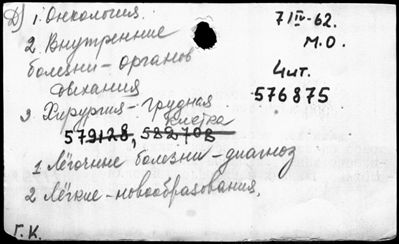 Д) 1. Онкология.
7/IV-62.
2. Внутренние
М.О.
болезни - органов
дыхания
4 ит.
576875
3 Хирургия - грудная
клетка
579128, 582708
1 Лёгочные болезни - диагноз
2 Лёгкие - новообразования.
Г.К.